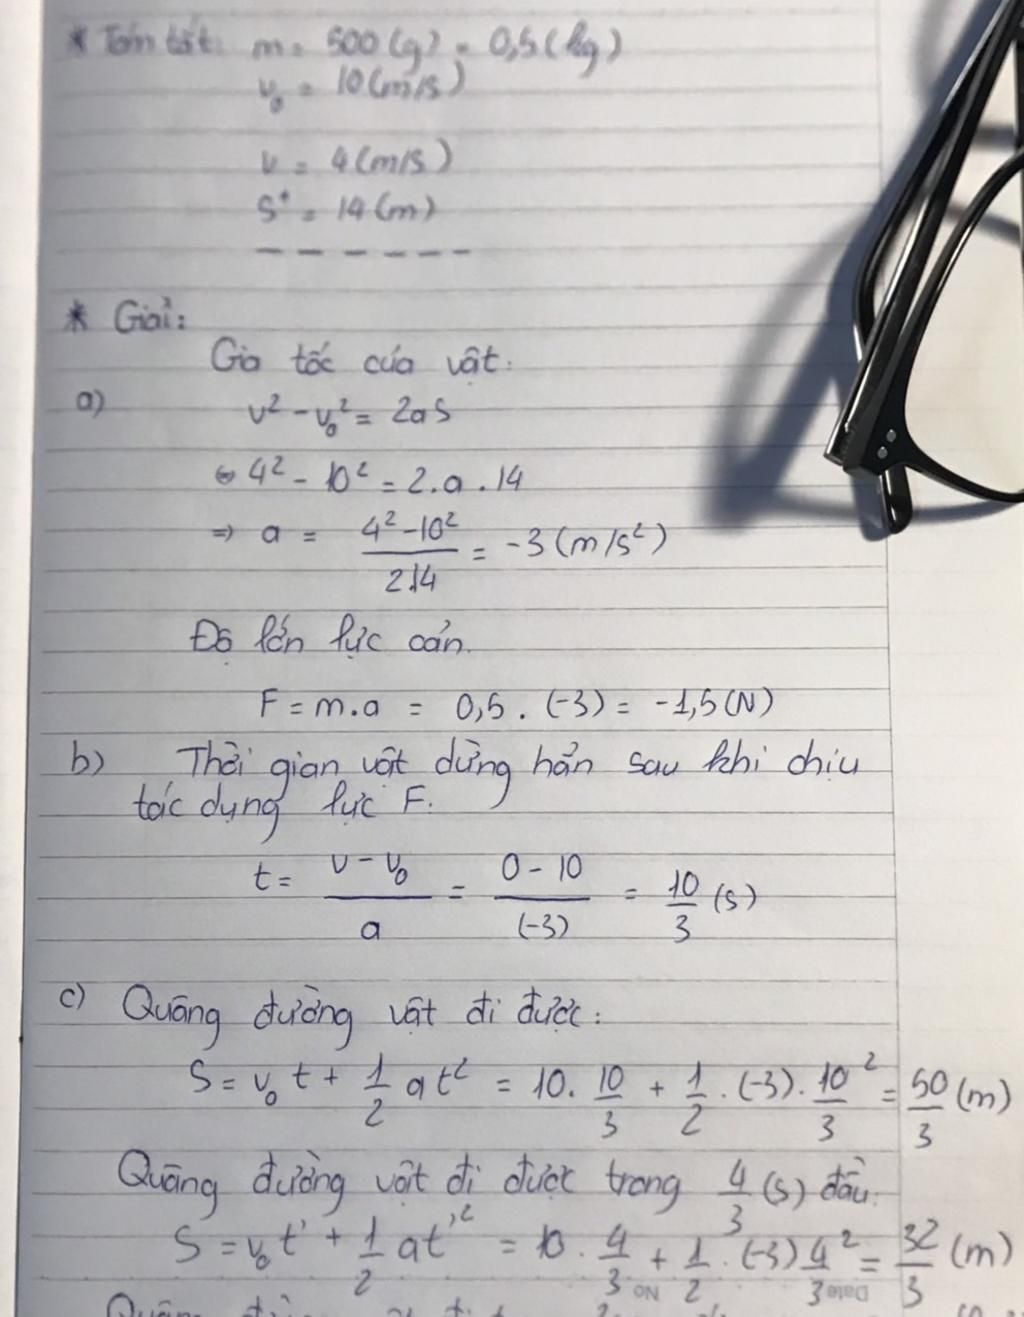 * Tóm tắt: m = 500 (g) = 0,5 (kg)
v₀ = 10 (m/s)
v = 4 (m/s)
S* = 14 (m)
* Giải:
Gia tốc của vật:
a) v² - v₀² = 2aS
⇔ 4² - 10² = 2.a.14
⇒ a = (4² - 10²)/(2.14) = -3 (m/s²)
Độ lớn lực cản.
F = m.a = 0,5 . (-3) = -1,5 (N)
b) Thời gian vật dừng hẳn sau khi chịu
tác dụng lực F.
t = (v - v₀)/a = (0 - 10)/(-3) = 10/3 (s)
c) Quãng đường vật đi được:
S = v₀t + 1/2 at² = 10. 10/3 + 1/2 . (-3). 10/3² = 50/3 (m)
Quãng đường vật đi được trong 4/3 (s) đầu:
S = v₀t' + 1/2 at'² = 10 . 4/3 + 1/2 . (-3) 4/3² = 32/3 (m)
No Date
Quãng